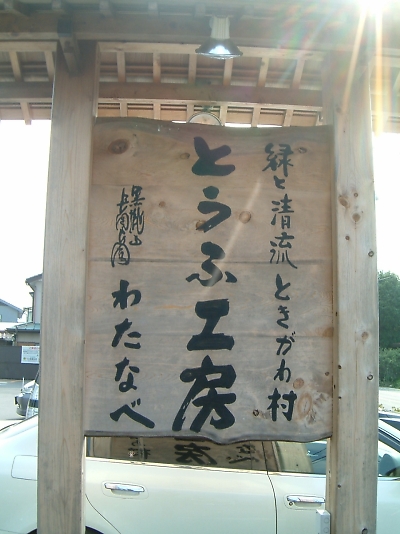 緑と清流ときがわ村
とうふ工房
わたなべ